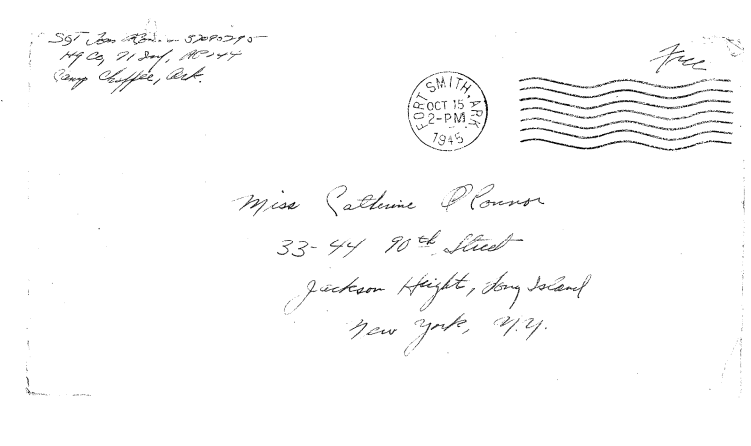 Sgt Tom
Hq Co, 71 Inf,
Camp Chaffee, Ark.
Free
FORT SMITH, ARK
OCT 15
2-PM
1945
Miss Catherine O'Connor
33-44 90th Street
Jackson Height, Long Island
New York, N.Y.